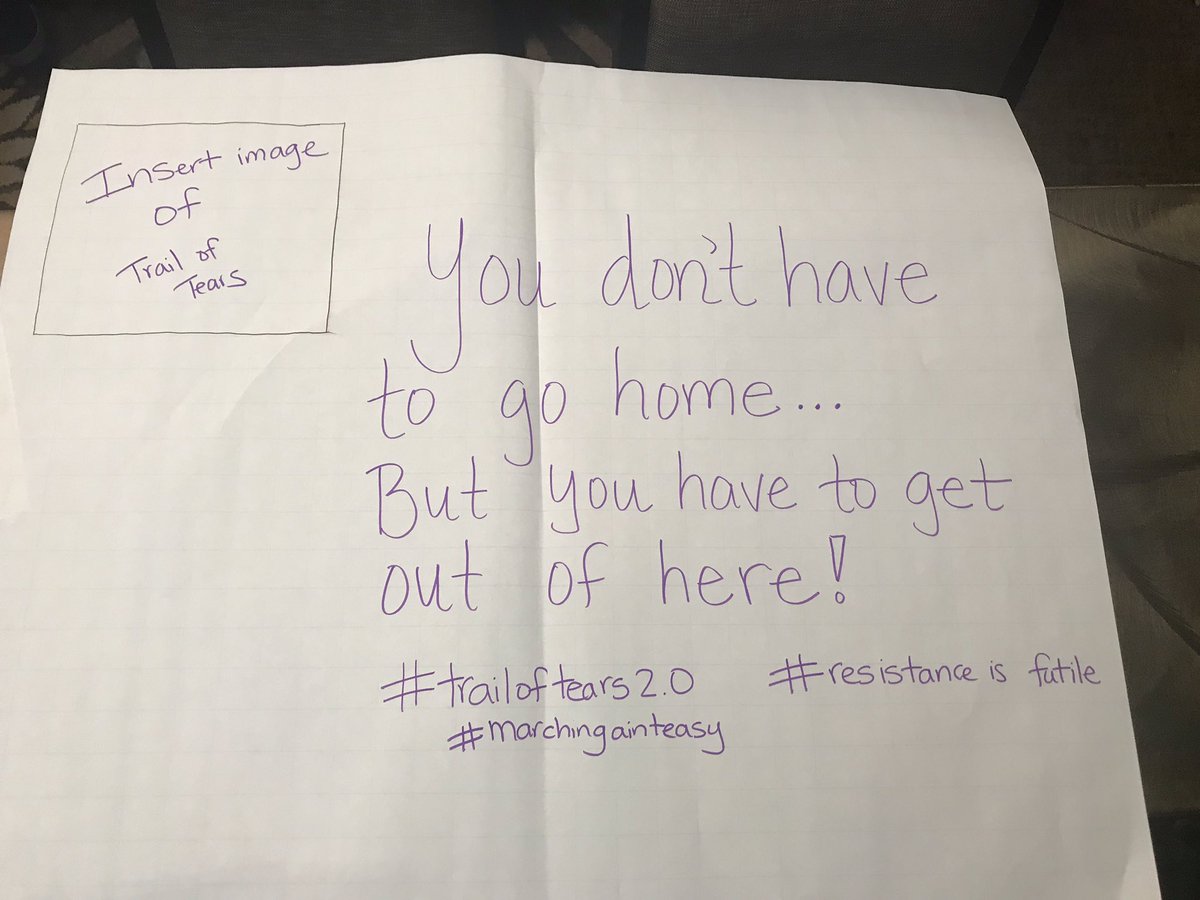 Insert image
of
Trail of
Tears
You don't have
to go home...
But you have to get
out of here!
#trailoftears2.0 #resistance is futile
#marchingainteasy